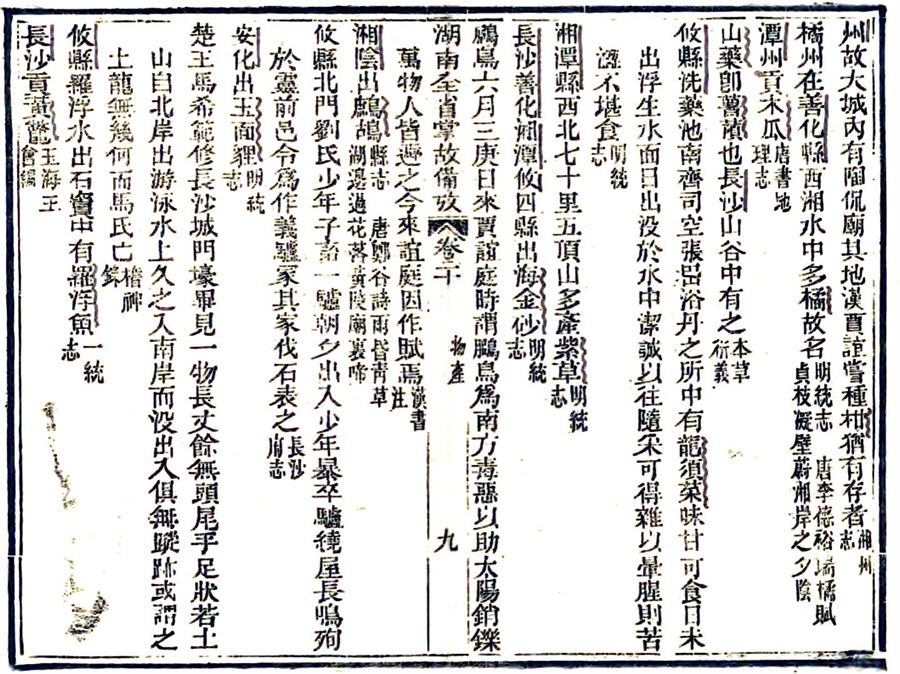 州故大城內有陶侃廟其地漢賈誼嘗種柑猶有存者湘州志
橘州在善化縣西湘水中多橘故名明統志 唐李德裕瑞橘賦貞枝凝壁蔚湘岸之夕陰
潭州貢木瓜唐書地理志
山藥卽薯蕷也長沙山谷中有之本草衍義
攸縣洗藥池南齊司空張岊浴丹之所中有龍須菜味甘可食日未
出浮生水面日出没於水中潔誠以往隨采可得雜以葷腥則苦
澀不堪食明統志
湘潭縣西北七十里五頂山多產紫草明統志
長沙善化湘潭攸四縣出海金砂明統志
鵩鳥六月三庚日來賈誼庭時謂鵩鳥爲南方毒惡以助太陽銷鑠
湖南全省掌故備攷 卷二十 物產 九
萬物人皆趣之今來誼庭因作賦焉漢書注
湘陰出鷓鴣縣志 唐鄭谷詩雨昏青草湖邊過花落黃陵廟裏啼
攸縣北門劉氏少年子畜一驢朝夕出入少年暴卒驢繞屋長鳴殉
於靈前邑令爲作義驢冢其家伐石表之長沙府志
安化出玉面貍明統志
楚王馬希範修長沙城門壕畢見一物長丈餘無頭尾手足狀若土
山自北岸出游泳水上久之入南岸而没出入俱無蹤跡或謂之
土龍無幾何而馬氏亡稽神錄
攸縣羅浮水出石竇中有羅浮魚一統志
長沙貢黃鶯玉海王會編